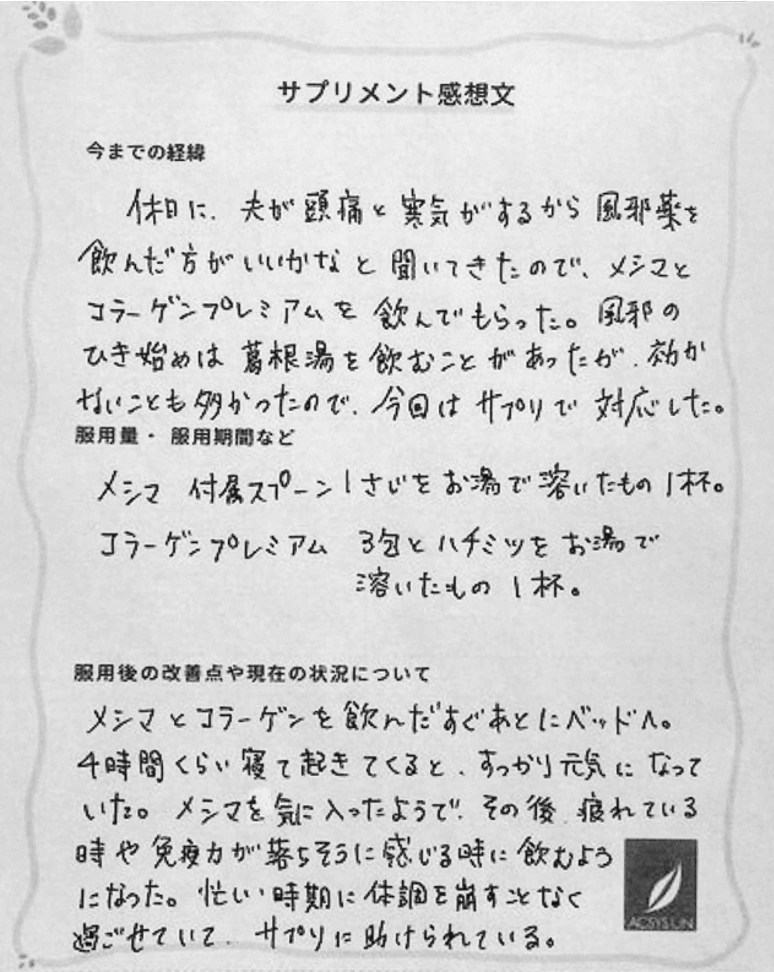 サプリメント感想文
今までの経緯
休日に、夫が頭痛と寒気がするから風邪薬を
飲んだ方がいいかなと聞いてきたので、メシマと
コラーゲンプレミアムを飲んでもらった。風邪の
ひき始めは葛根湯を飲むことがあったが、効か
ないことも多かったので、今回はサプリで対応した。
服用量・服用期間など
メシマ 付属スプーン1さじをお湯で溶いたもの1杯。
コラーゲンプレミアム 3包とハチミツをお湯で
溶いたもの1杯。
服用後の改善点や現在の状況について
メシマとコラーゲンを飲んだすぐあとにベッドへ。
4時間くらい寝て起きてくると、すっかり元気になって
いた。メシマを気に入ったようで、その後、疲れている
時や免疫力が落ちそうに感じる時に飲むよう
になった。忙しい時期に体調を崩すことなく
過ごせていて、サプリに助けられている。
ACSYS LIN